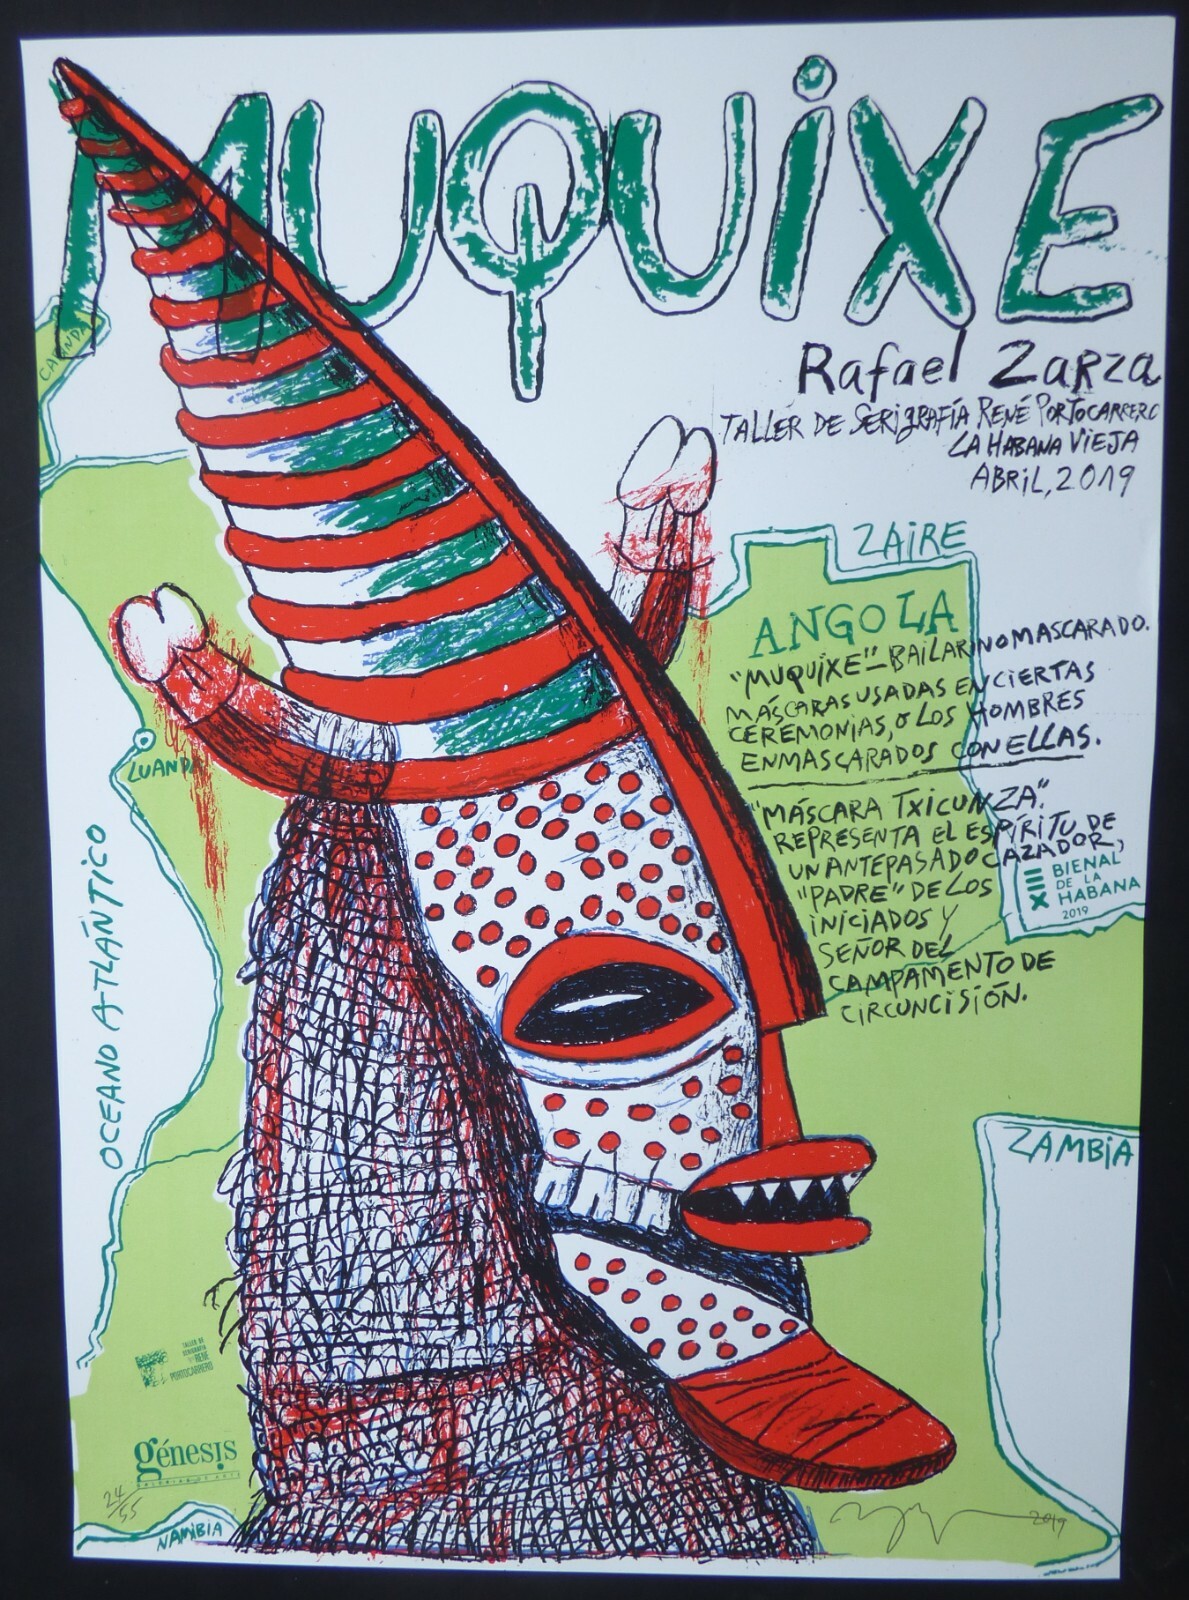 MUQUIXE
Rafael Zarza
TALLER DE SERIGRAFÍA RENÉ PORTOCARRERO
LA HABANA VIEJA
ABRIL, 2019
CABINDA
ZAIRE
ANGOLA
"MUQUIXE" - BAILARINO MASCARADO.
MÁSCARAS USADAS EN CIERTAS
CEREMONIAS, O LOS HOMBRES
ENMASCARADOS CON ELLAS.
"MÁSCARA TXICUNZA".
REPRESENTA EL ESPÍRITU DE
UN ANTEPASADO CAZADOR,
"PADRE" DE LOS
INICIADOS Y
SEÑOR DEL
CAMPAMENTO DE
CIRCUNCISIÓN.
XIII BIENAL
DE LA
HABANA
2019
LUANDA
OCEANO ATLÁNTICO
ZAMBIA
TALLER DE
SERIGRAFIA
RENÉ
PORTOCARRERO
génesis
GALERIAS DE ARTE
24/55
NAMIBIA
2019